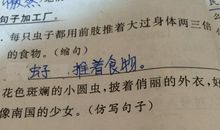 句子加工厂。
每只虫子都用前肢推着大过身体两三倍
的食物。(缩句)
虫子 推着食物。
花色斑斓的小圆虫,披着俏丽的外衣,好
像南国的少女。(仿写句子)